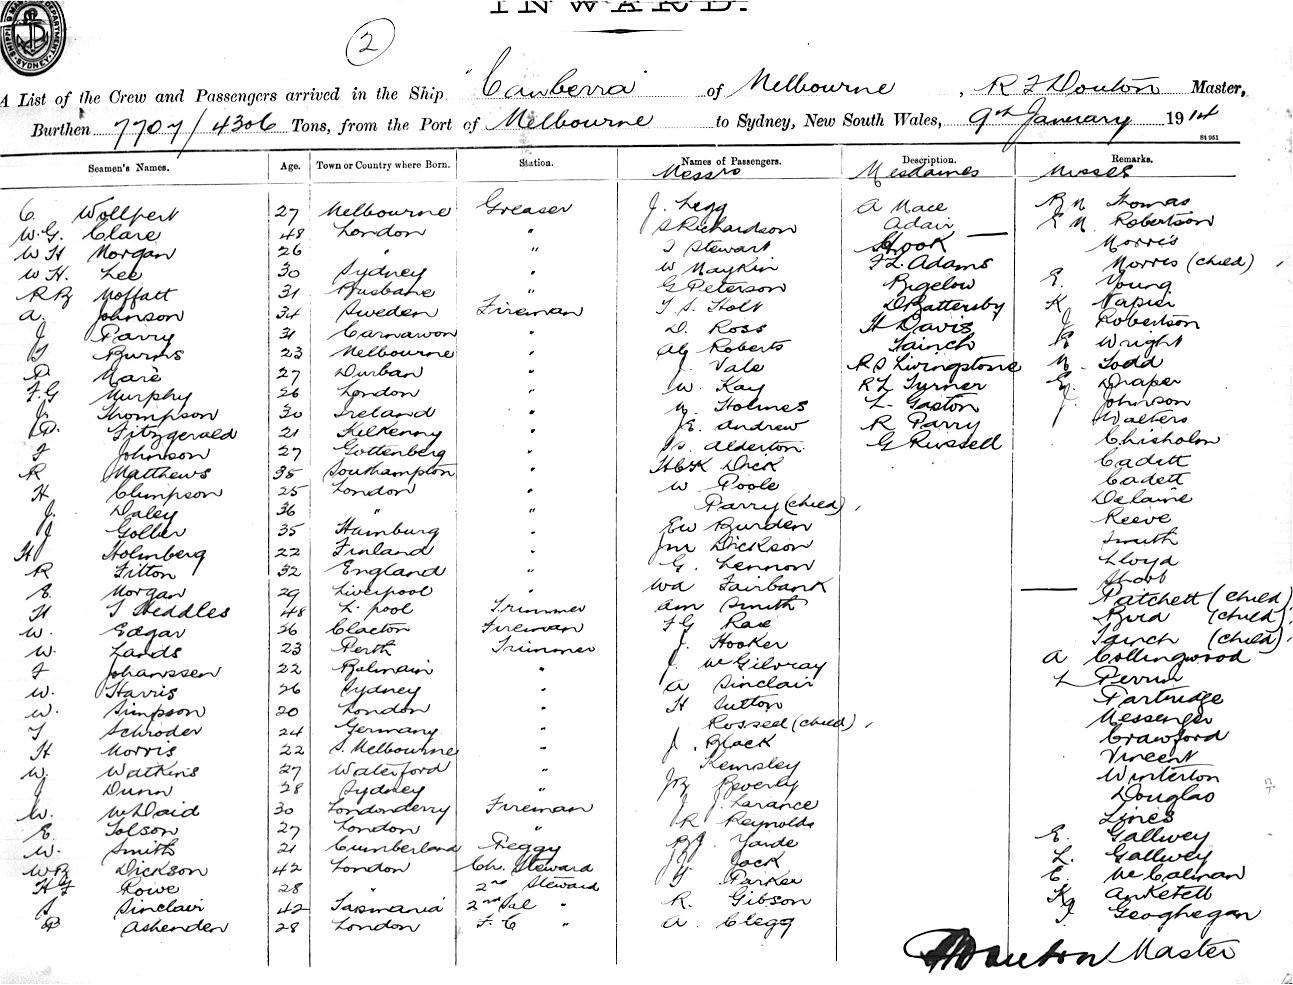 INWARD.
2
A List of the Crew and Passengers arrived in the Ship "Canberra" of Melbourne, R F Douton Master,
Burthen 7707/4306 Tons, from the Port of Melbourne to Sydney, New South Wales, 9th January 1914
St 951
Seamen's Names. Age. Town or Country where Born. Station. Names of Passengers. Description. Remarks.
Messrs Mesdames Misses
C. Wollpert 27 Melbourne Greaser J. Legg A Mace Thomas
W.G. Clare 48 London " S Richardson Adair E M. Robertson
W H Morgan 26 " " T Stewart Shook Morris
W H. Lee 30 Sydney " W Maykin F L. Adams Morris (child)
R B Moffatt 31 Brisbane " G Peterson Bigelow E. Young
A. Johnson 34 Sweden Fireman T S. Holt D Battersby K Napier
J Parry 31 Carnarvon " D. Ross H Davis J Robertson
T Burns 23 Melbourne " Roberts Tainch R Wright
P Mare 27 Durban " J. Vale R S Livingstone M. Todd
F.G Murphy 26 London " W. Kay R L Turner Draper
J. Thompson 30 Ireland " Holmes L. Gaston J. Johnson
P. Fitzgerald 21 Kilkenny " J E. Andrew R Parry Walters
J Johnson 27 Gottenberg " Alderton G Russell Chisholm
R Matthews 35 Southampton " Dick Cadett
H Climpson 25 London " W Poole Cadett
J. Daley 36 " " Parry (child) Delaine
J Goller 35 Hamburg " EW Burden Reeve
H Holmberg 22 Finland " JM Dickson Smith
R Fitton 32 England " G. Lennon Lloyd
E. Morgan 29 Liverpool " WA Fairbank Short
H J Heddles 48 L.pool Trimmer AM Smith Patchett (child)
W. Edgar 36 Clacton Fireman F G Rae Bird (child)
W. Lands 23 Perth Trimmer J. Hooker Tainch (child)
J Johanssen 22 Balmain " J. McGilvray A Collingwood
W. Harris 26 Sydney " A Sinclair L Perrin
W. Simpson 20 London " H Sutton Partridge
T Schroder 24 Germany " Rossed (child) Messenger
H Morris 22 S. Melbourne " J. Black Crawford
W. Watkins 27 Waterford " Kemsley Vincent
J Dunn 28 Sydney " Beverly Winterton
W. McDaid 30 Londonderry Fireman J J Larance Douglas
E. Tolson 27 London " R Reynolds Lines
W. Smith 21 Cumberland Peggy Yarde E. Gallwey
WB Dickson 42 London Ch. Steward Jack L. Gallwey
H F Rowe 28 " 2nd Steward Parker E. McCalman
S Sinclair 42 Tasmania 2nd Sal " R. Gibson K Anketell
B Ashenden 28 London F.C " A. Clegg J. Geoghegan
Douton Master